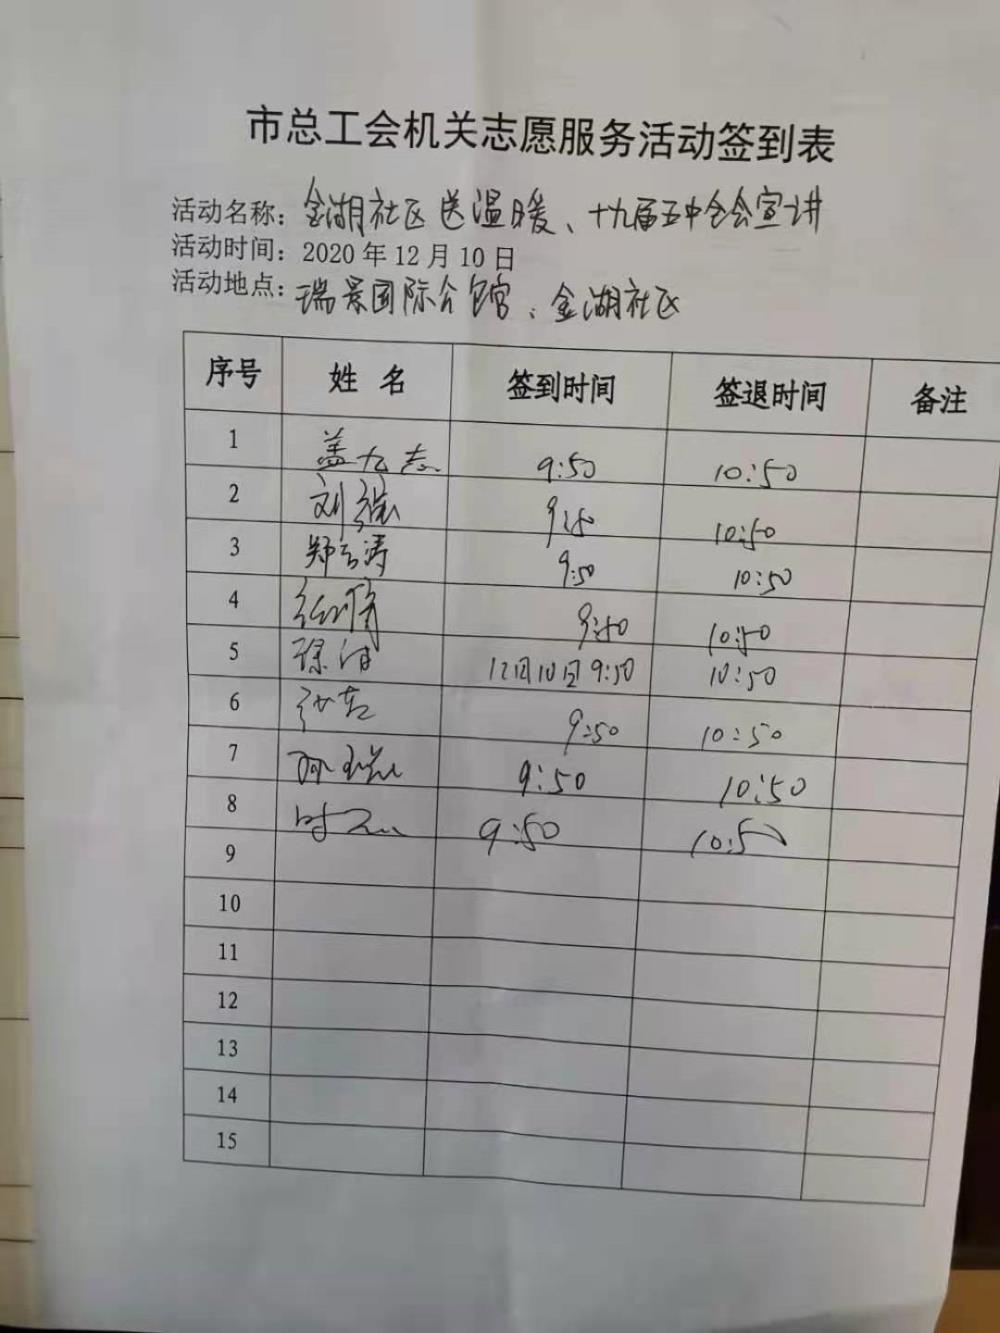 市总工会机关志愿服务活动签到表
活动名称：金湖社区送温暖、十九届五中全会宣讲
活动时间：2020年12月10日
活动地点：瑞景国际公馆、金湖社区
序号 姓名 签到时间 签退时间 备注
1 盖九志 9:50 10:50
2 刘 9:50 10:50
3 郑云涛 9:50 10:50
4 9:50 10:50
5 徐 12月10日9:50 10:50
6 9:50 10:50
7 9:50 10:50
8 时 9:50 10:50
9
10
11
12
13
14
15